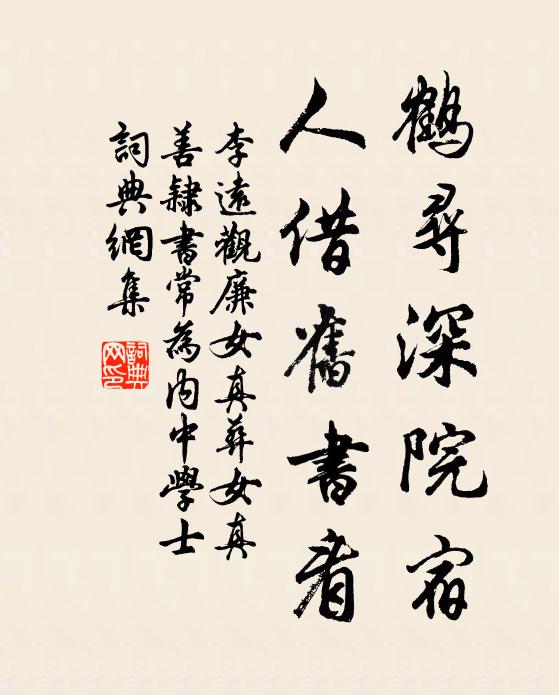 鶴尋深院宿
人借舊書看
李遠觀廉女真葬女真
善隸書常為內中學士
詞典網集
詞典網印